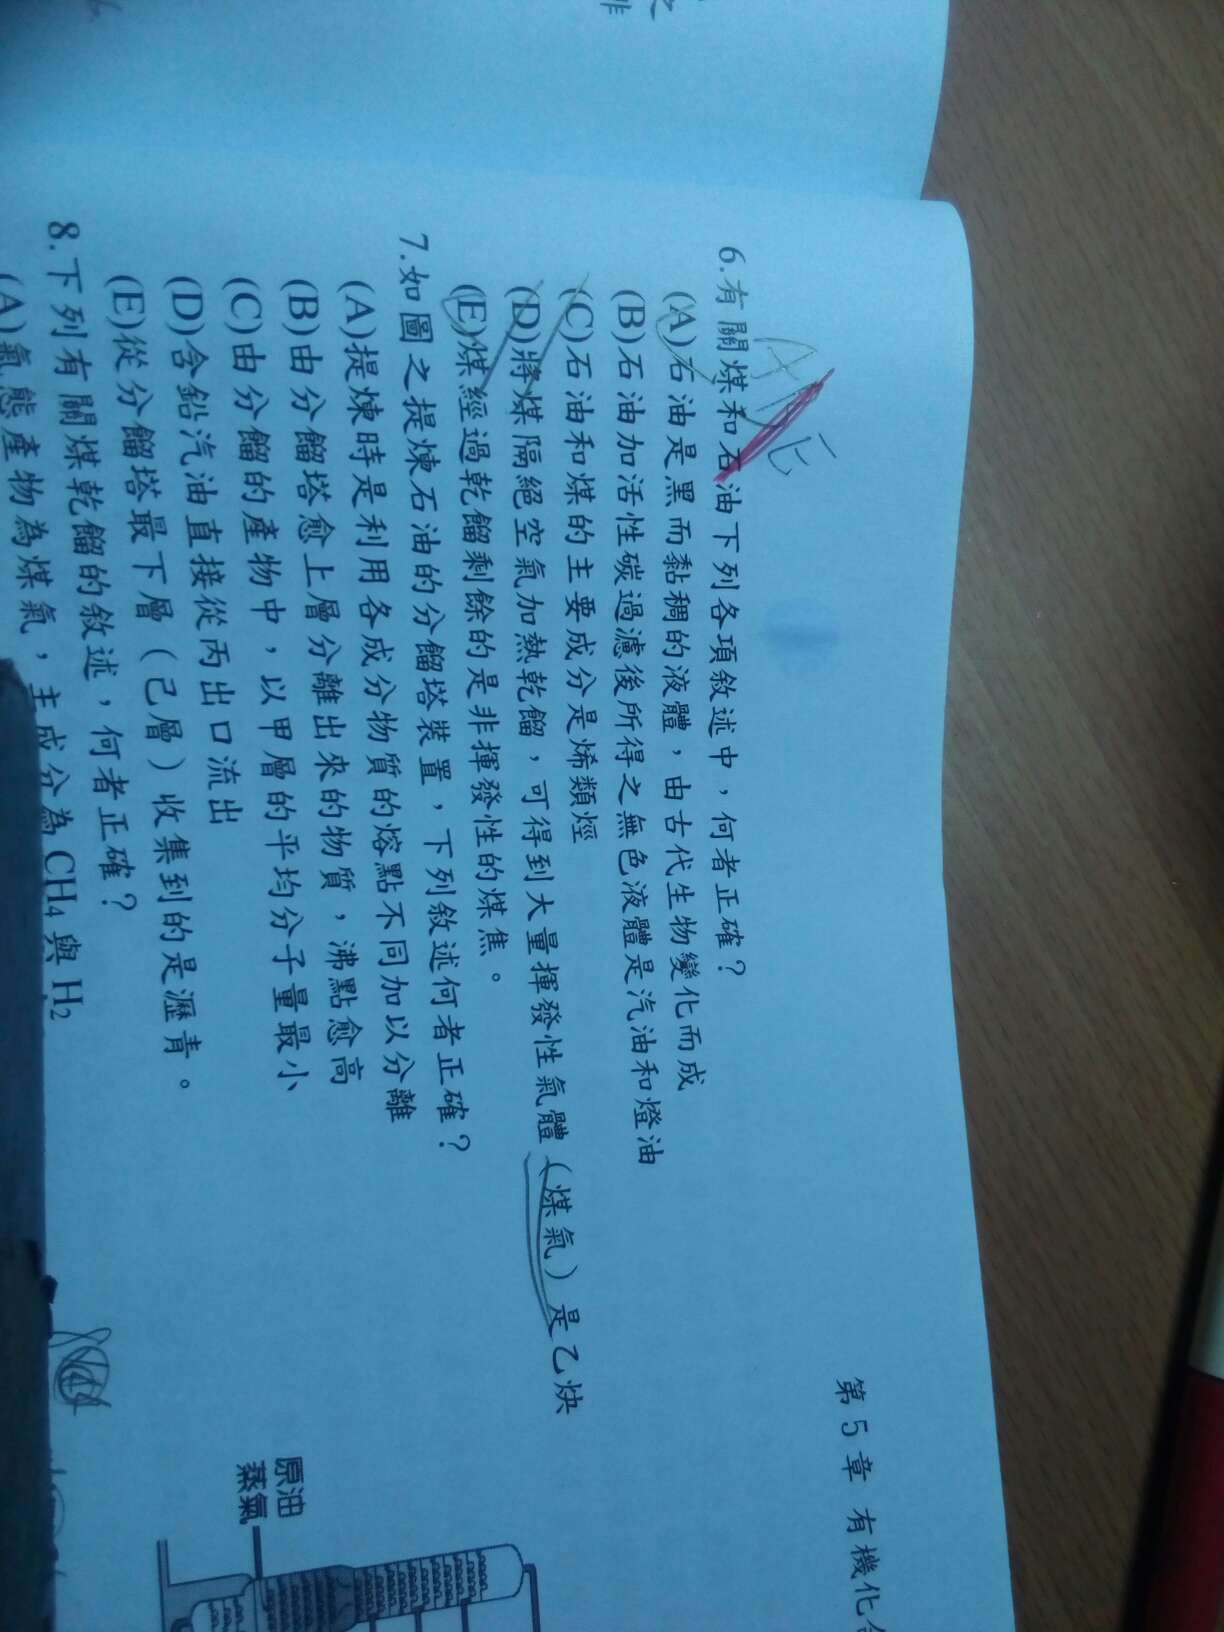 第5章 有機化合
AE
6.有關煤和石油下列各項敘述中，何者正確？
(A)石油是黑而黏稠的液體，由古代生物變化而成
(B)石油加活性碳過濾後所得之無色液體是汽油和燈油
(C)石油和煤的主要成分是烯類烴
(D)將煤隔絕空氣加熱乾餾，可得到大量揮發性氣體（煤氣）是乙炔
(E)煤經過乾餾剩餘的是非揮發性的煤焦。
7.如圖之提煉石油的分餾塔裝置，下列敘述何者正確？
(A)提煉時是利用各成分物質的熔點不同加以分離
(B)由分餾塔愈上層分離出來的物質，沸點愈高
(C)由分餾的產物中，以甲層的平均分子量最小
(D)含鉛汽油直接從丙出口流出
(E)從分餾塔最下層（己層）收集到的是瀝青。
原油
蒸氣
8.下列有關煤乾餾的敘述，何者正確？
(A)氣態產物為煤氣，主成分為CH4與H2